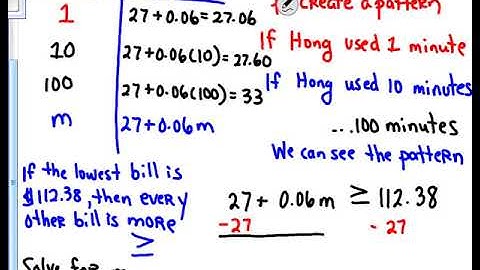 1 27+0.06=27.06
Create a pattern
If Hong used 1 minute
10 27+0.06(10)=27.60
If Hong used 10 minutes
100 27+0.06(100)=33
...100 minutes
m 27+0.06m
We can see the pattern
If the lowest bill is
$112.38, then every
other bill is more
≥
27+ 0.06m ≥ 112.38
-27 - 27
Solve for m